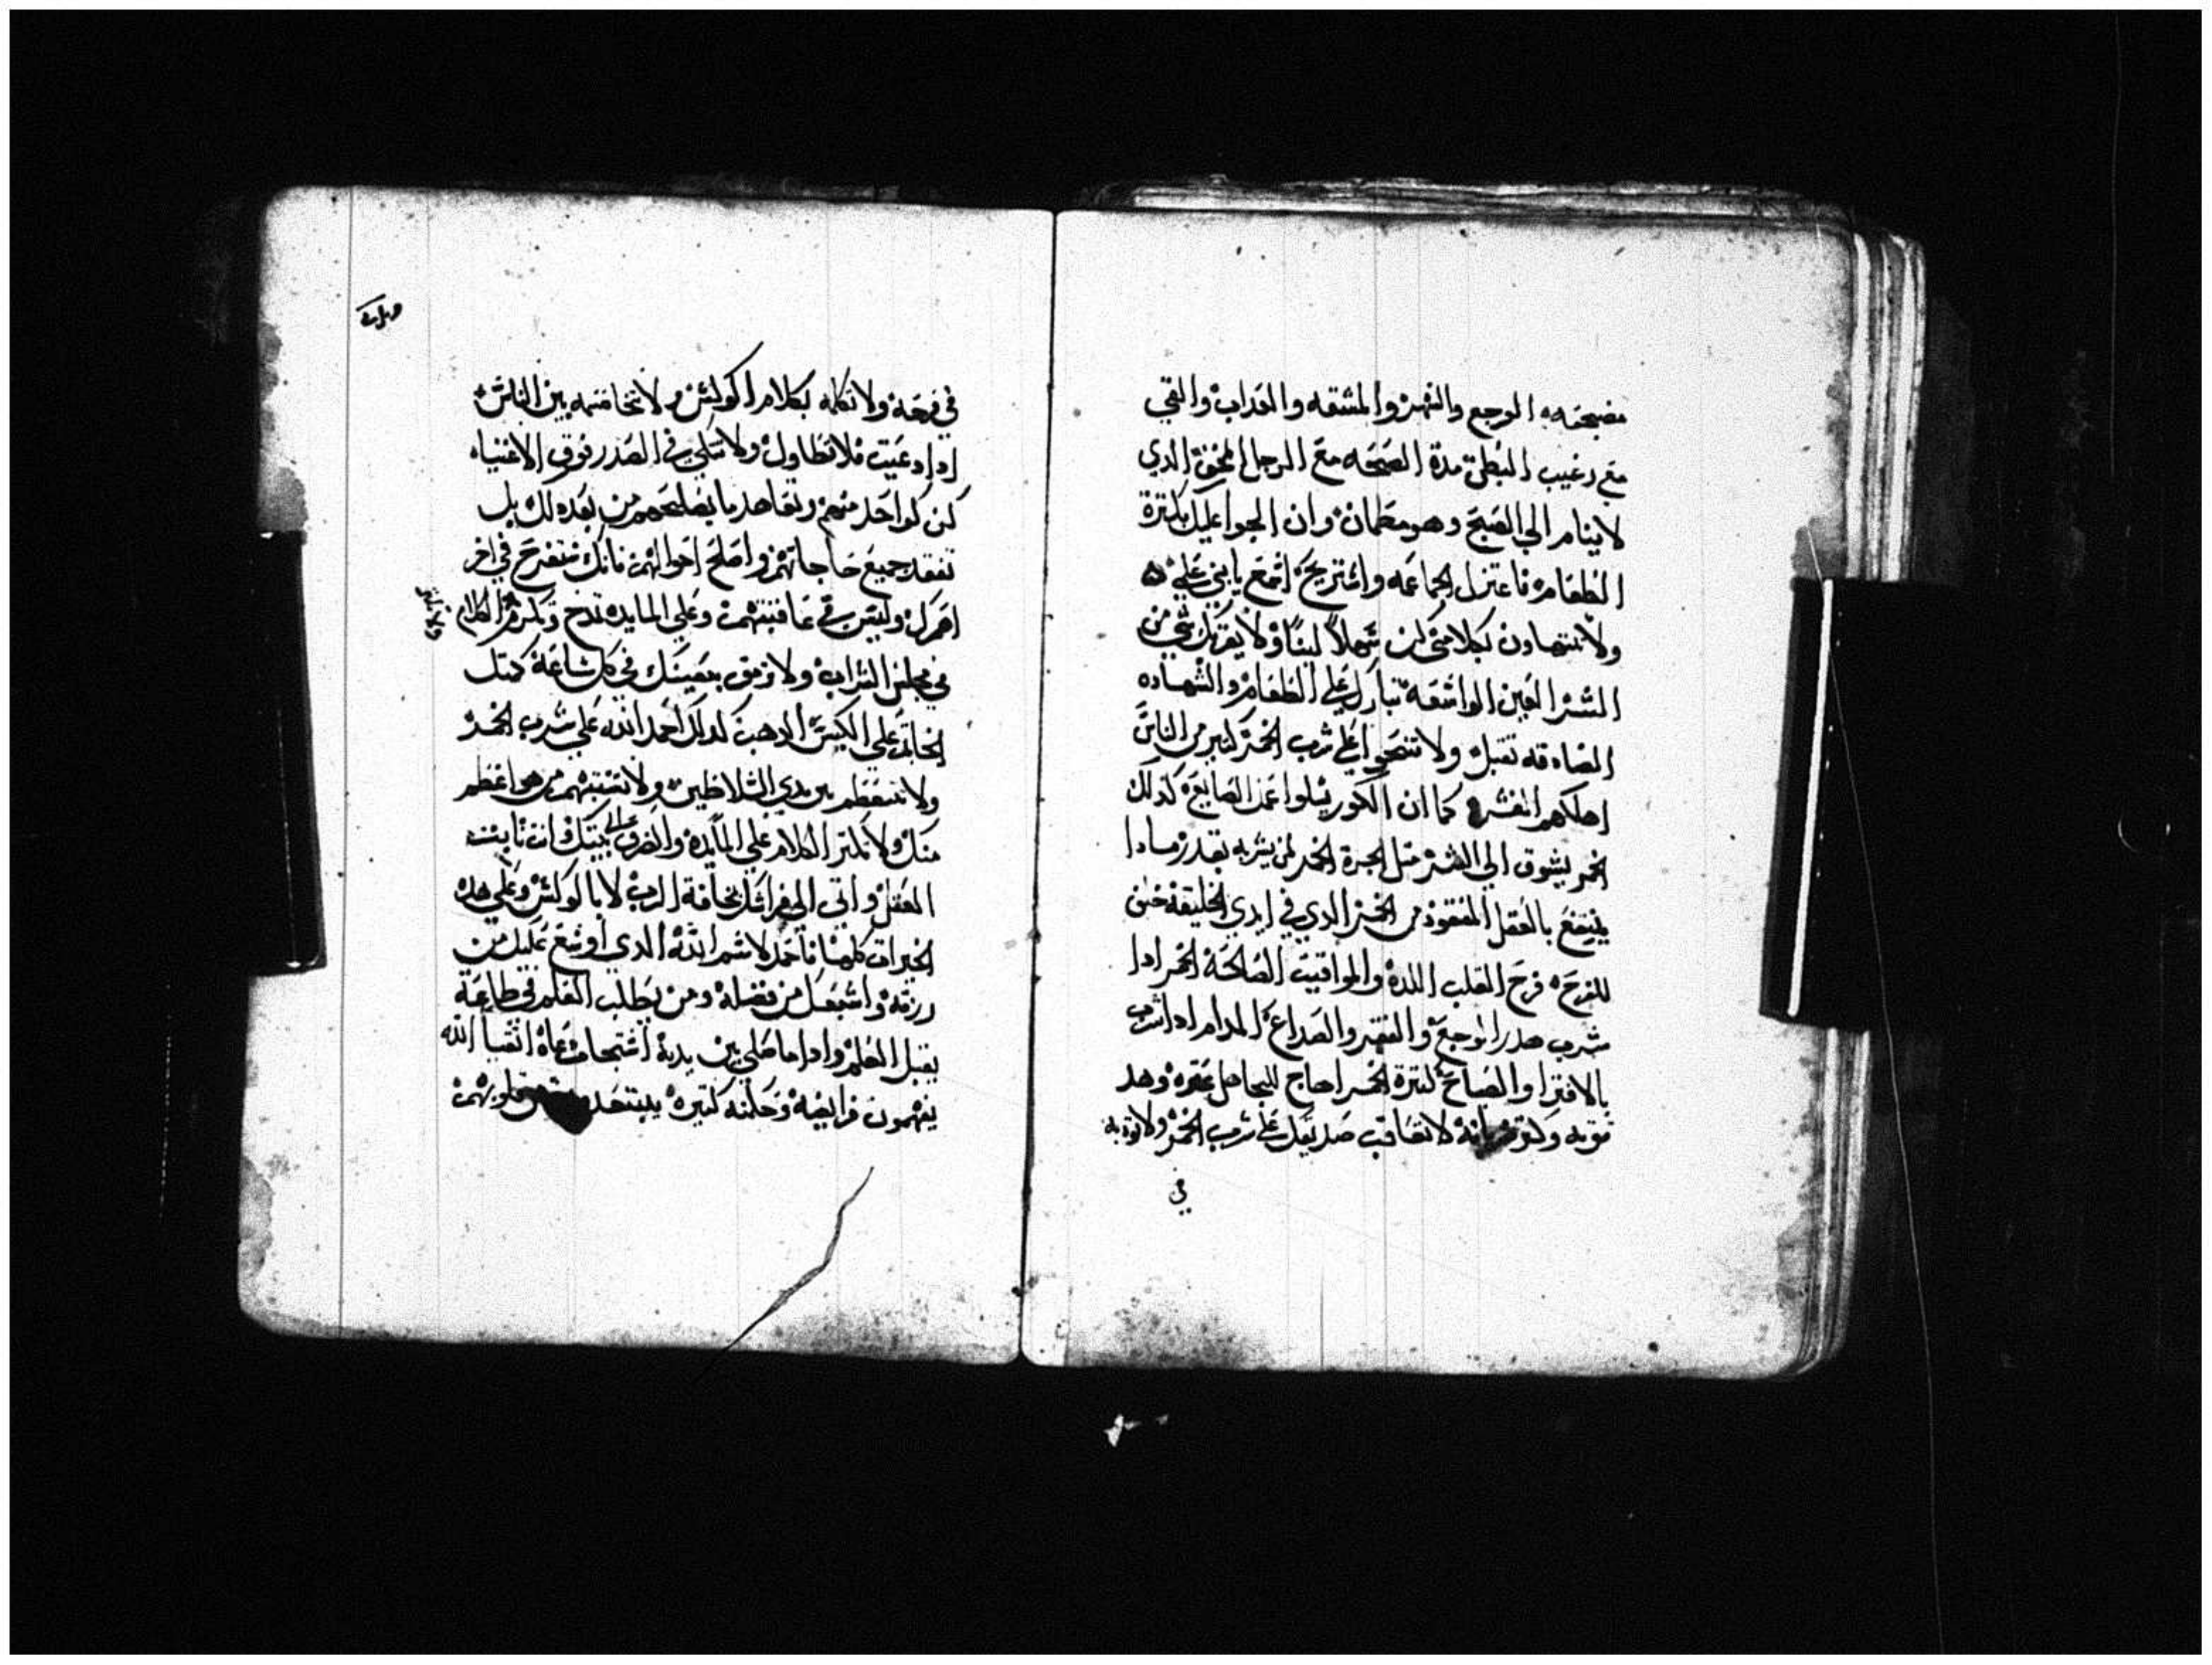 مضجعه الوجع والسهر والمشقه والعداب والقي
مع رغيب البطن مدة الصحه مع الرجل المخفف الدي
لاينام الي الصبح وهو مطمان وان الجوا عليك بكترة
الطعام فاعتزل الجماعه واستريح اسمع يابني علي
ولا تتهاون بكلامي كن سهلا لينا ولا يقربك شي من
الشر العين الواسعه تبارك علي الطعام والشهاده
الصادقه تقبل ولا تتصوا علي شرب الخمر كتير من الناس
اهلكهم المسكر كما ان الكور يبلوا عمل الصايغ كدلك
الخمر يشوق الي الشر مثل الجبرة الخمر لمن يشربه بقدر مادا
ينتفع بالعقل المفقود من الخمر الدي في ايدي الخليقه خلق
للفرح فرح القلب اللدة والمواقيت الصالحة الخمر ادا
شرب صدر الوجع والفقر والصداع المدام ادا شرب
بالافترا والصباح كترة الخمر اهاج للجاهل عتره وهد
قوته وكتر لانه لا تعاتب صديقك علي شرب الخمر ولا توديه
في
في فرحه ولا تكلمه بكلام الوكس ولا تخاصمه بين الناس
ادا دعيت فلا تطاول ولا تتكي في الصدر فوق الاغنياء
كن كواحد منهم وتعاهد ما يصلحهم من بعد دلك بل
تفقد جميع حاجاتهم واصلح احوالهم فانك ستفرح في اخر
امرك وليس في عاقبتهم وعلي المايده تمدح وتكرم الكلام
في مجلس الشراب ولا ترمق بعينك في كل ساعة كمثل
الخاتم علي الكيس الدهب كدلك احمد الله علي شرب الخمر
ولا تتعظم بين يدي السلاطين ولا تشبههم من هو اعظم
منك ولا تكتر الكلام علي المايده وانصرف الي بيتك وانت تابت
العقل واتي الي فراشك بمخافة الرب لا بالوكس وعلي هده
الخيرات كلها فاحمد لاسم الله الدي اوسع عليك من
رزقه واشبعك من فضله ومن يطلب العلم في طاعة
يقبل العلم وادا ما صلي بين يديه استجاب دعاه اتقيا الله
يفهمون فرايضه وحكمه كتيره قلوبهم